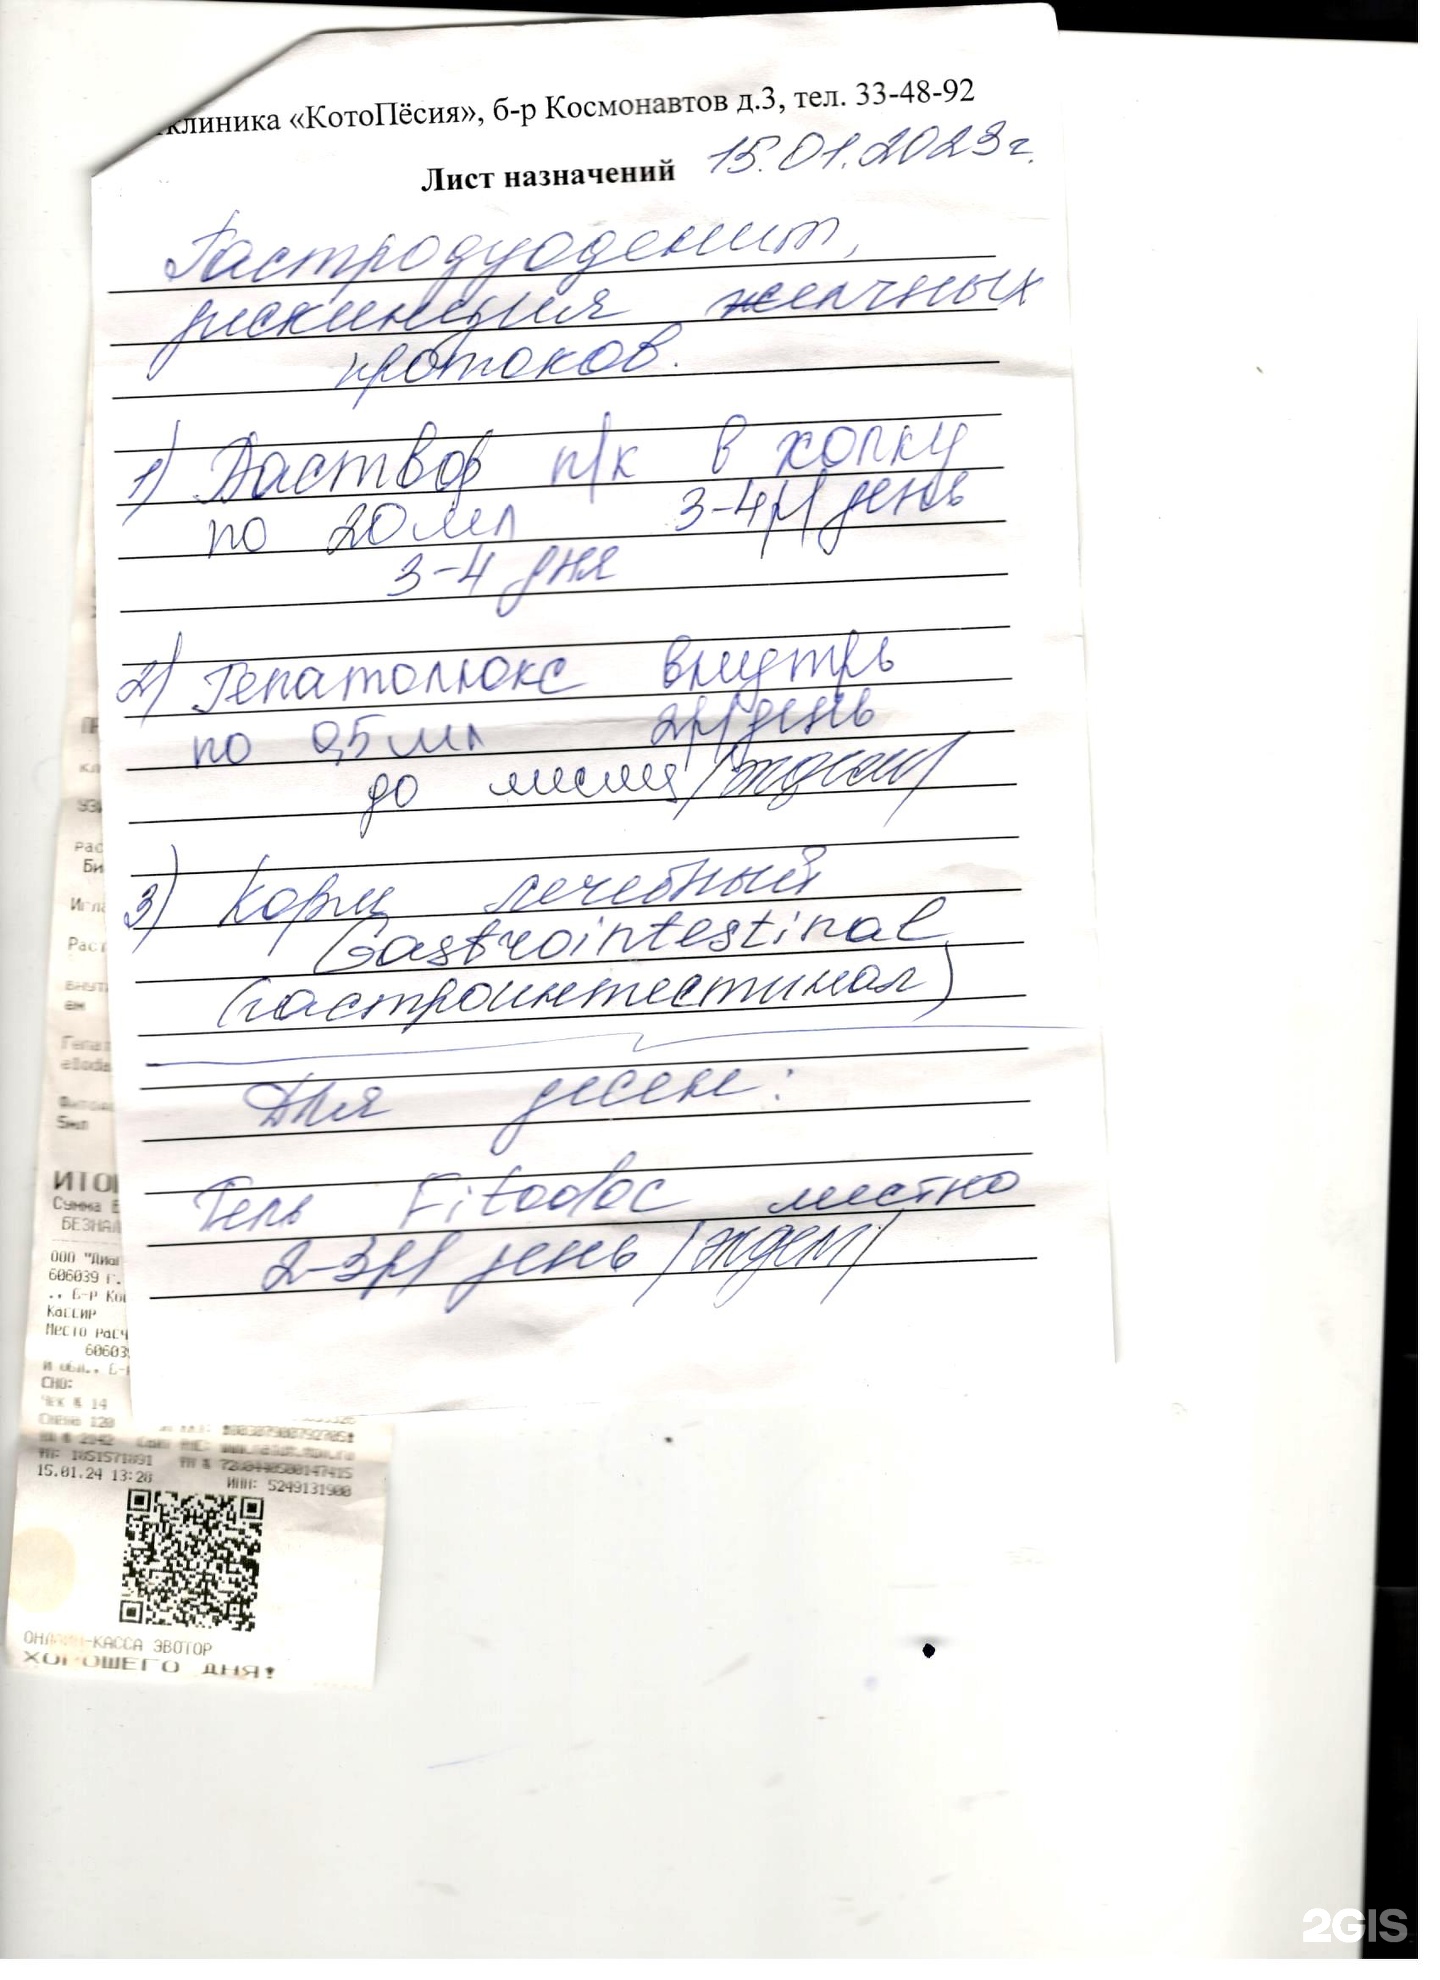 клиника «КотоПёсия», б-р Космонавтов д.3, тел. 33-48-92
Лист назначений 15.01.2023г.
Гастродуоденит,
дискинезия желчных
протоков.
1) Раствор п/к в холку
по 20 мл 3-4р/день
3-4 дня
2) Гепатолюкс внутрь
по 0,5 мл 2р/день
до месяца /ждем/
3) Корм лечебный
Gastrointestinal
(гастроинтестинал)
Для десен:
Гель Fitodoc местно
2-3р/день /ждем/
ИТО
Сумма Б
БЕЗНАЛ
ООО "Лиа
606039 г.
., б-р Ко
Кассир
Место расч
60603
СНО:
Чек № 14
Смена 120
15.01.24 13:28
ИНН: 5249131900
ОНЛАЙН-КАССА ЭВОТОР
ХОРОШЕГО ДНЯ!
2GIS